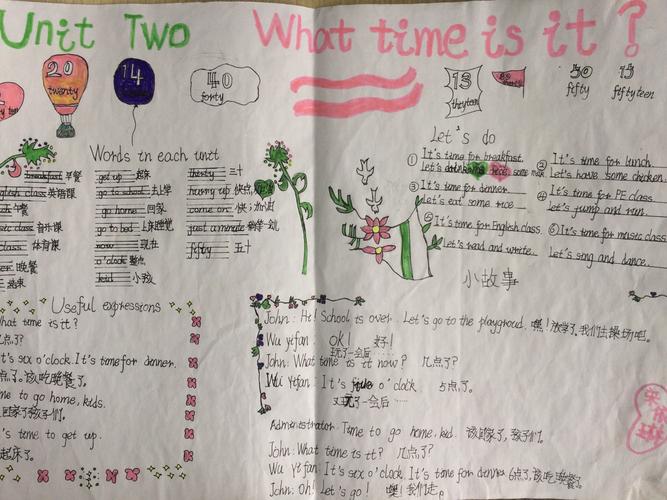 Unit Two What time is it ?
20
twenty
14
40
forty
13
thryteen
80
50
fifty
15
fiftyteen
Words in each unit
breakfast 早餐
English class 英语课
午餐
class 音乐课
class 体育课
晚餐
结束
get up 起床
go to school 去上学
go home 回家
go to bed 上床睡觉
now 现在
o'clock 整点
kid 小孩
thirty 三十
hurry up 快点
come on 快;加油
just a minute 稍等一会儿
fifty 五十
Let's do
① It's time for breakfast.
Let's drink some milk
② It's time for lunch.
Let's have some chicken.
③ It's time for dinner.
Let's eat some rice
④ It's time for PE class.
Let's jump and run.
⑤ It's time for English class.
Let's read and write.
⑥ It's time for music class.
Let's sing and dance.
Useful expressions
what time is it?
几点了?
It's sex o'clock. It's time for dinner.
点了。该吃晚餐了。
me to go home, kids.
回家了孩子们。
's time to get up.
起床了。
小故事
John: Hi! School is over. Let's go to the playgroud. 嘿!放学了。我们去操场吧。
Wu yifan: OK! 好!
玩了一会后
John: What time is it now? 几点了?
Wu Yifan: It's five o'clock. 5点了。
又玩了一会后……
Administrator: Time to go home, kid. 该回家了,孩子们。
John: What time is it? 几点了?
Wu Yifan: It's sex o'clock. It's time for dinner 6点了,该吃晚餐了。
John: Oh! Let's go! 噢!我们走。